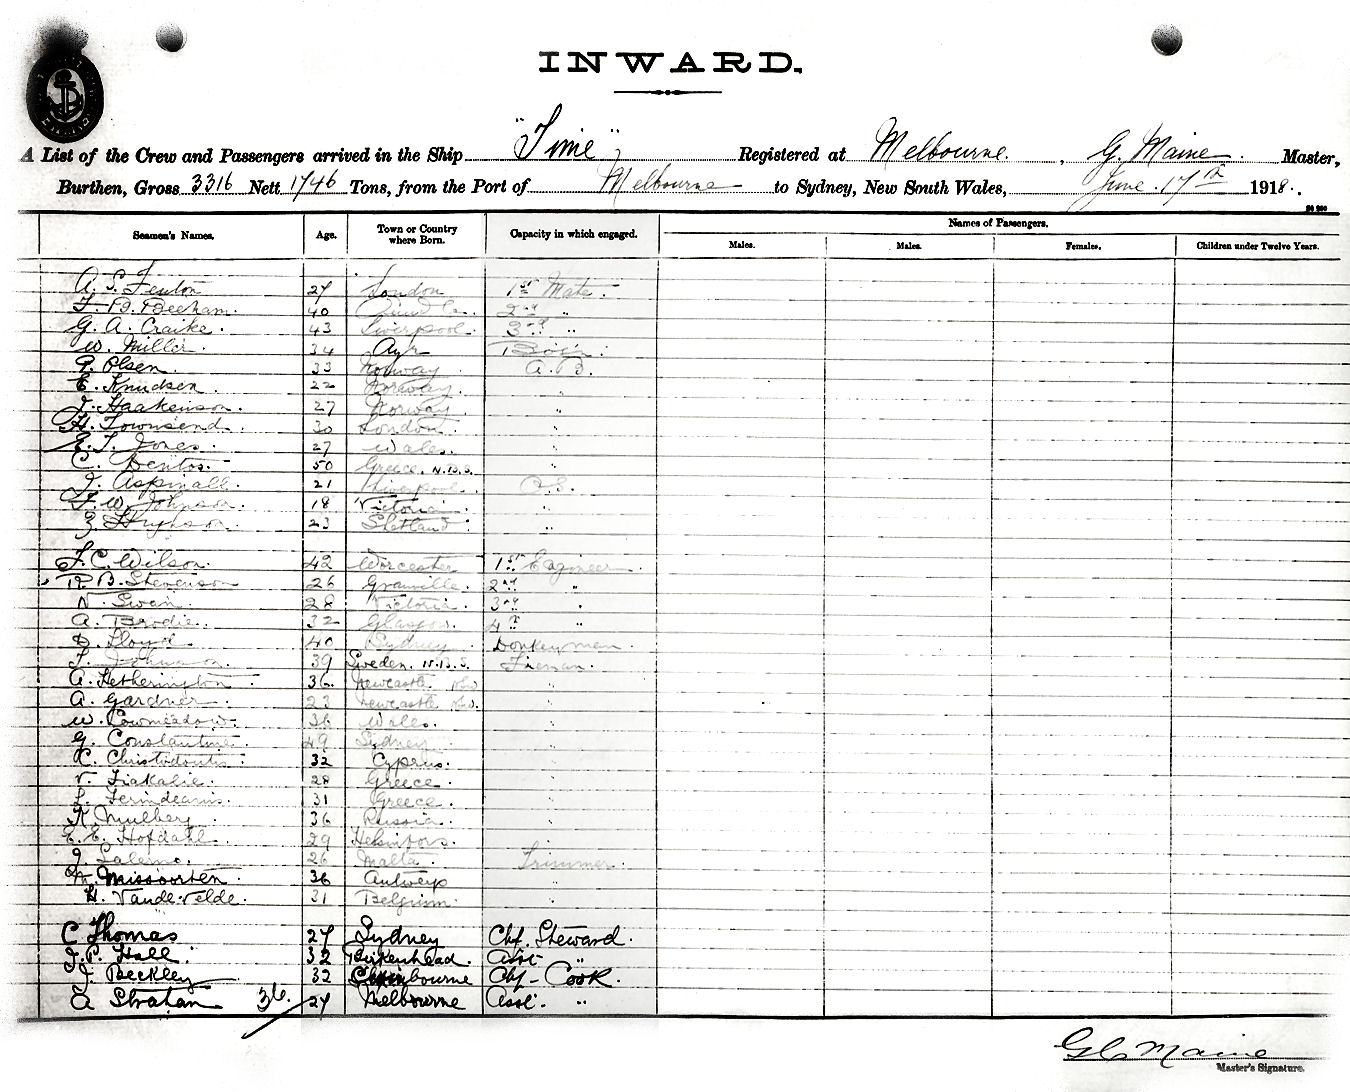 INWARD.
A List of the Crew and Passengers arrived in the Ship "Time", Registered at Melbourne. , G. Maine. Master,
Burthen, Gross 3316 Nett 1746 Tons, from the Port of Melbourne to Sydney, New South Wales, June. 17th 1918.
Names of Passengers.
Seamen's Names. Age. Town or Country where Born. Capacity in which engaged. Males. Males. Females. Children under Twelve Years.
A. S. Fenton 27 London 1st Mate.
F. B. Beecham. 40 2nd "
G. A. Craike. 43 Liverpool. 3rd "
W. Miller. 34 Ayr
P. Olsen. 33 Norway A.B.
E. Knudsen. 22 Norway. "
J. Haakenson. 27 Norway. "
H. Townsend. 30 London. "
E. T. Jones. 27 Wales. "
C. 50 Greece. N.B.S. "
J. Aspinall. 21 Liverpool. O.S.
F. W. Johnson. 18 Victoria. "
23 Shetland. "
F. C. Wilson. 42 Worcester 1st Engineer.
R. B. Stevenson 26 Granville. 2nd "
N. Swan. 28 Victoria. 3rd "
A. Brodie. 32 Glasgow. 4th "
D. Lloyd. 40 Sydney. Donkeyman.
F. Johnson. 39 Sweden. N.B.S. Fireman.
A. Hetherington. 36. Newcastle. NSW "
A. Gardner. 23 Newcastle NSW. "
W. Cowmeadow. 36 Wales. "
G. Constantine. 49 Sydney. "
C. Christodoulis. 32 Cyprus. "
V. 28 Greece. "
31 Greece. "
K. Mulberg. 36 Russia. "
E. E. Hofdahl. 29 Helsinfors. "
J. Salerno. 26 Malta. Trimmer.
M. Missoorten. 36 Antwerp "
H. Vande.velde. 31 Belgium. "
C Thomas 27 Sydney Chf. Steward.
J. P. Hall. 32 Birkenhead. Asst "
J. Beckley 32 Chf - Cook.
A Stratan 36. 27 Melbourne Asst. "
G Maine
Master's Signature.